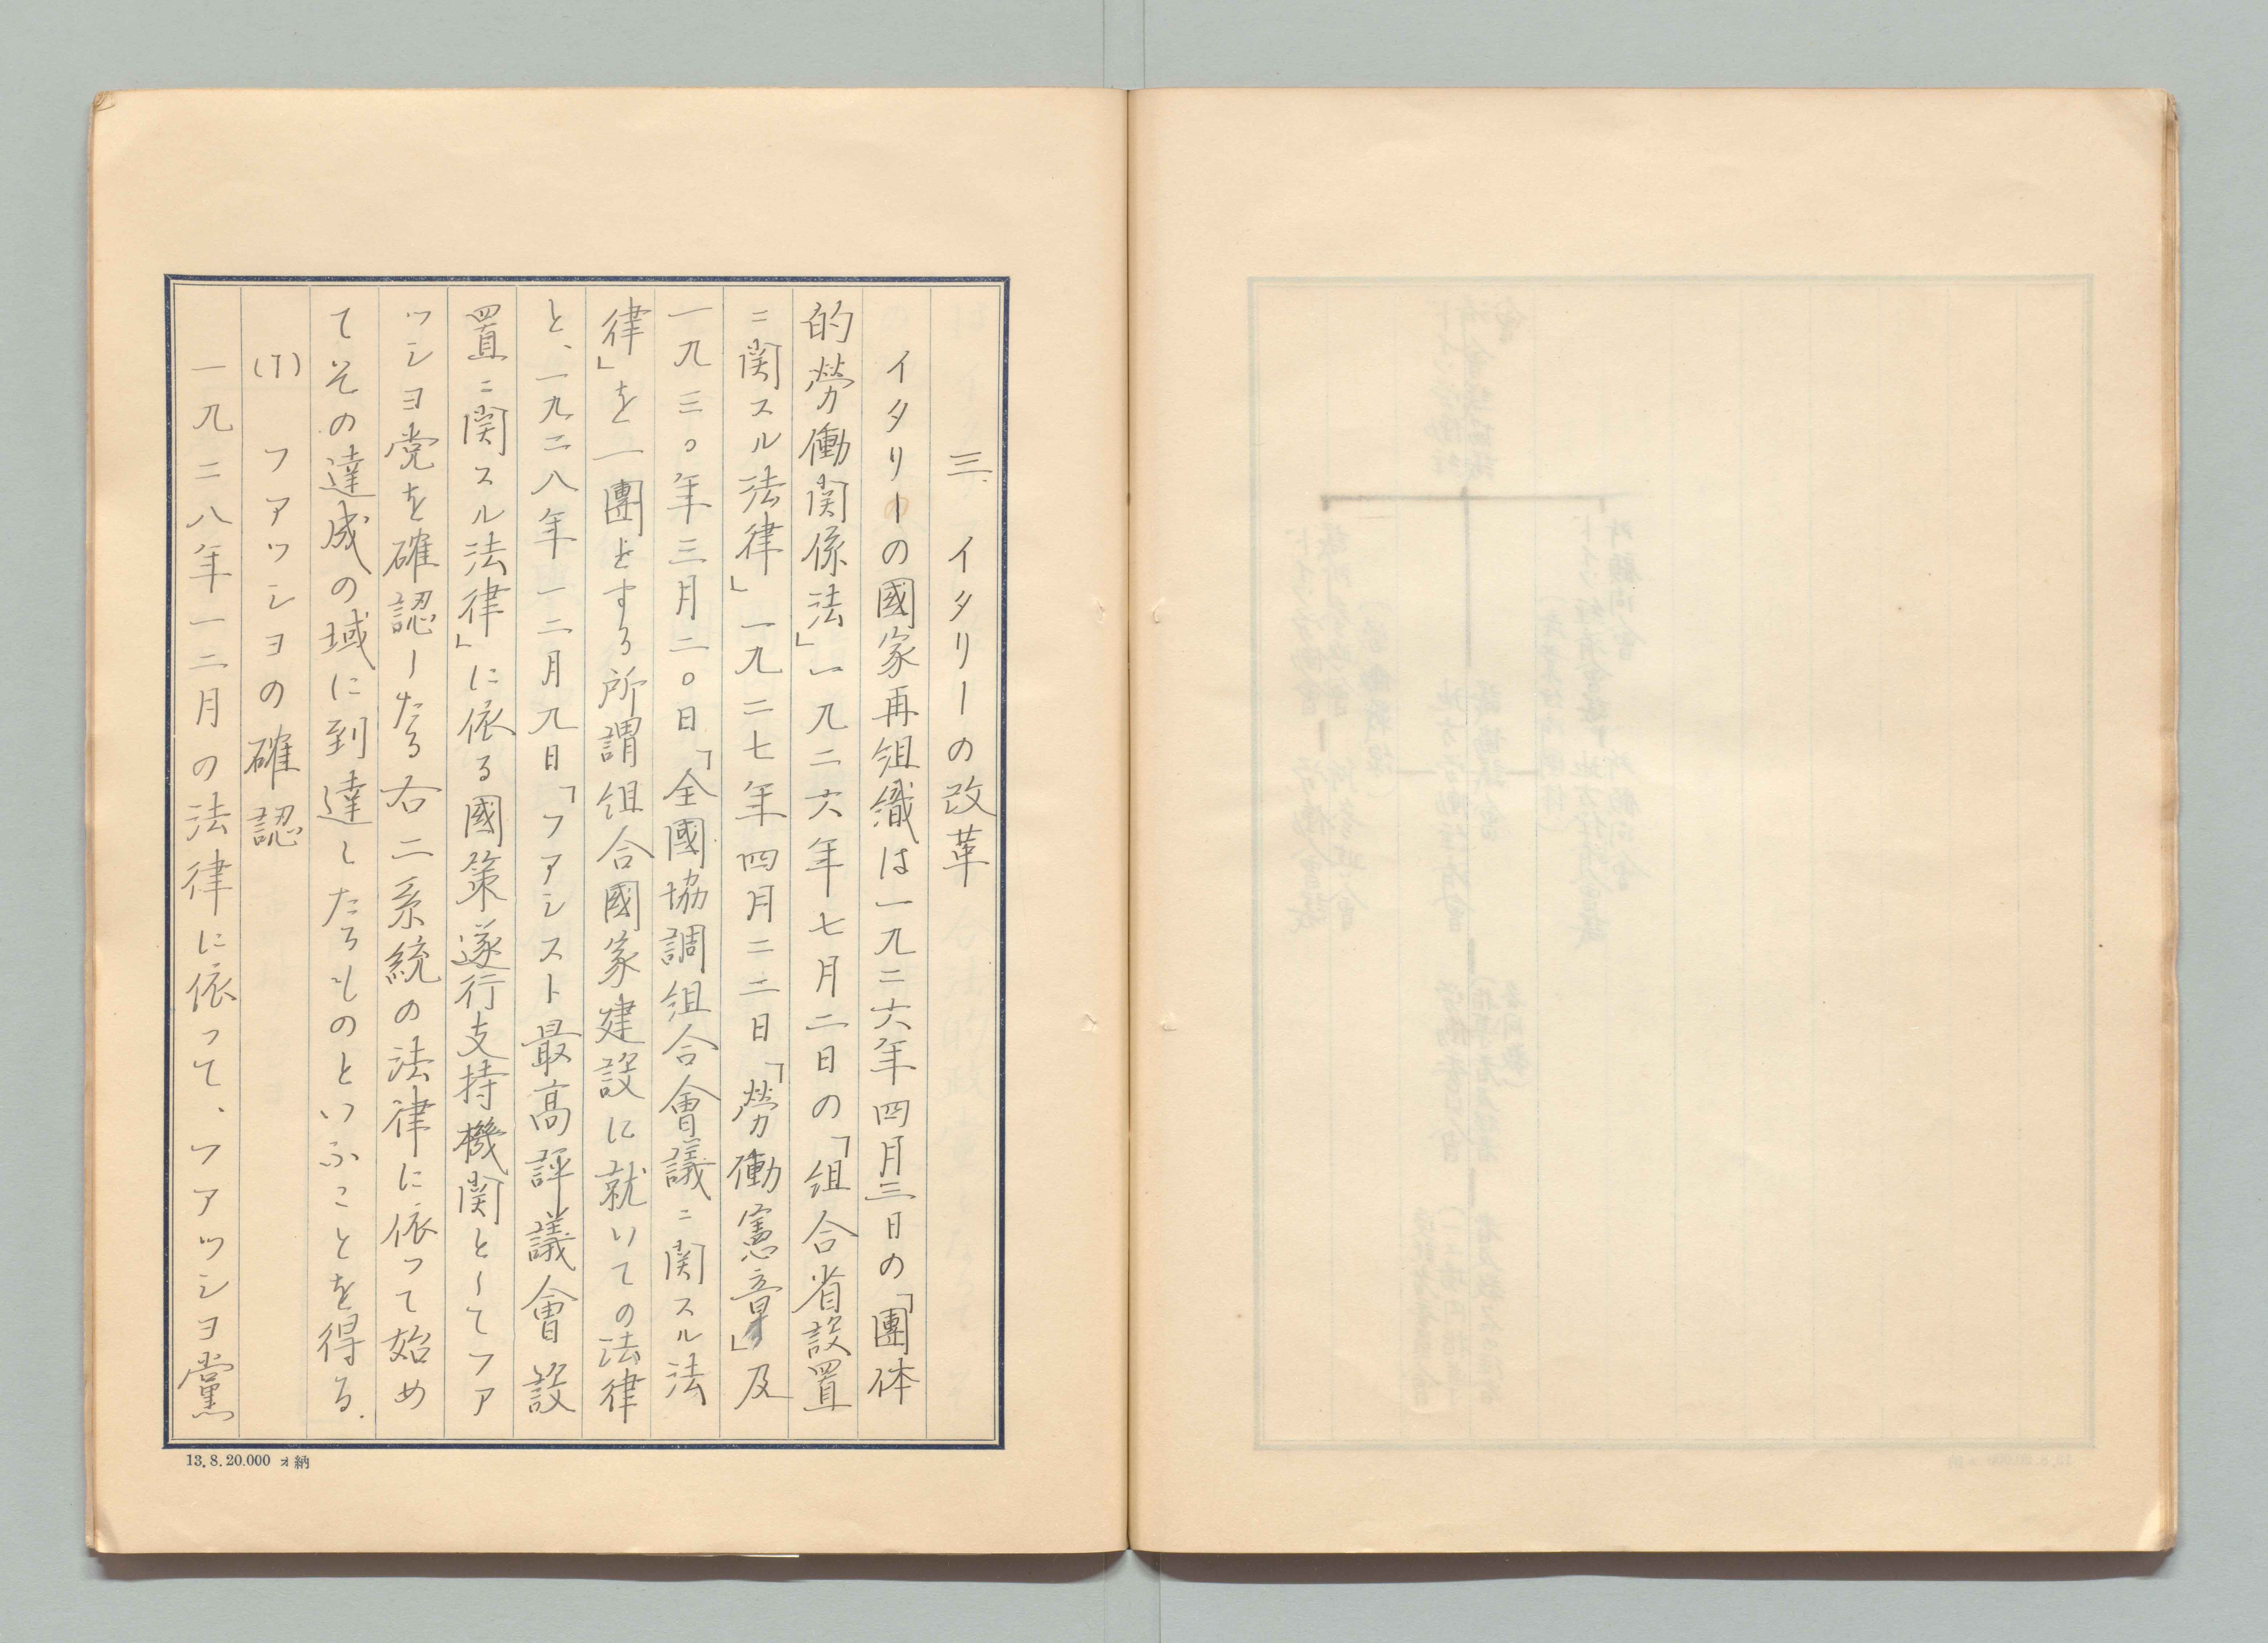 三、イタリーの改革
イタリーの國家再組織は一九二六年四月三日の「團体
的勞働関係法」一九二六年七月二日の「組合省設置
ニ関スル法律」一九二七年四月二二日「勞働憲章」及
一九三〇年三月二〇日「全國協調組合會議ニ関スル法
律」を一團とする所謂組合國家建設に就いての法律
と、一九二八年一二月九日「フアシスト最高評議會設
置ニ関スル法律」に依る國策遂行支持機関としてフア
ツシヨ党を確認したる右二系統の法律に依って始め
てその達成の域に到達したるものといふことを得る.
(1) フアツシヨの確認
一九二八年一二月の法律に依って、フアツシヨ黨
13.8.20.000 ォ納